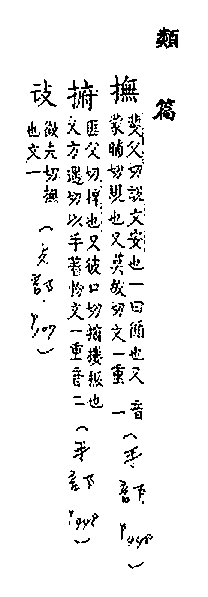 類篇
撫 斐父切說文安也一曰循也又
蒙晡切規也又荒故切文一重音一（手部下 P448）
捬 匪父切撣也又彼口切摟報也
又方遇切以手著物文一重音二（手部下 P448）
切撫
也文一（部 P107）